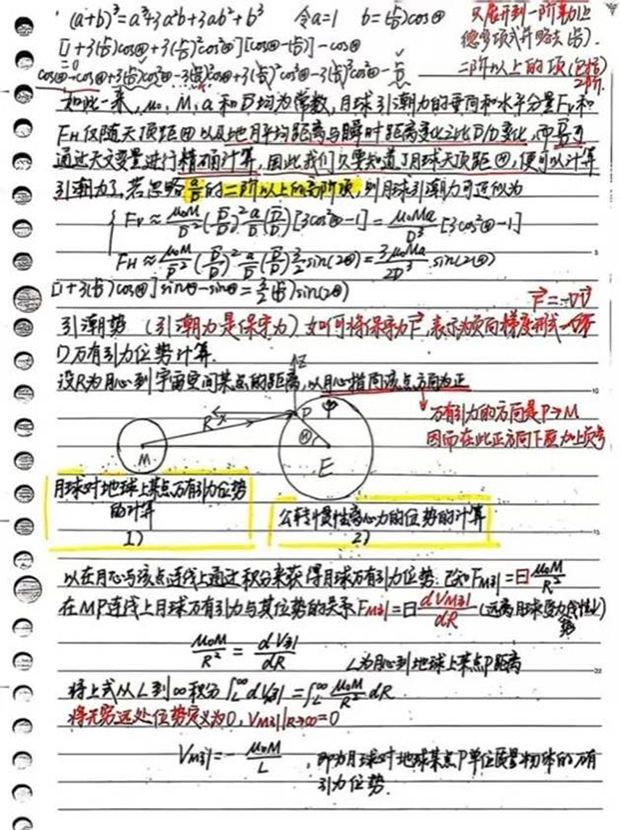 (a+b)³=a³+3a²b+3ab²+b³ 令a=1 b=(a/D)cosΘ
只展开到一阶
二阶以上的项
[1+3(a/D)cosΘ+3(a/D)²cos²Θ][cosΘ-(a/D)]-cosΘ
如此一来, μ₀、M、a和D均为常数, 月球引潮力的垂向和水平分量Fv和
FH仅随天顶距Θ以及地月平均距离与瞬时距离变化之比D/D变化, 而
通过天文变量进行精确计算, 因此我们只要知道了月球天顶距Θ, 便可以计算
引潮力了. 若忽略a/D的二阶以上的高阶项, 则月球引潮力可近似为
Fv≈μ₀M/D²(D/D)²a/D(D/D)[3cos²Θ-1]=μ₀Ma/D³[3cos²Θ-1]
FH≈μ₀M/D²(D/D)²a/D(D/D)3/2sin(2Θ)=3μ₀Ma/2D³ sin(2Θ)
[1+3(a/D)cosΘ]sinΘ-sinΘ=3/2(a/D)sin(2Θ)
引潮势 (引潮力是保守力) 如何将保守力F表示为负向梯度形式
1)万有引力位势计算.
设R为月心到宇宙空间某点的距离, 以月心指向该点方向为正
万有引力的方向是P→M
因而在此正方向下要加上负号
Z
R x P Φ
Θ
M E
月球对地球上某点万有引力位势
的计算
1)
公转惯性离心力的位势的计算
2)
以在月心与该点连线上通过积分来获得月球万有引力位势. 已知FM引=-μ₀M/R²
在MP连线上月球万有引力与其位势的关系FM引=-dVM引/dR
μ₀M/R²=dV引/dR L为月心到地球上某点P距离
将上式从L到∞积分∫L∞dV引=∫L∞μ₀M/R² dR
将无穷远处位势定义为0, VM引|R→∞=0
VM引=-μ₀M/L, 即为月球对地球某点P单位质量物体的万有
引力位势.